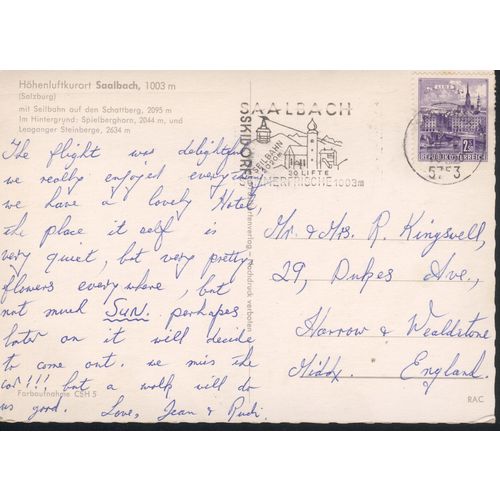 Höhenluftkurort Saalbach, 1003 m
(Salzburg)
mit Seilbahn auf den Schattberg, 2095 m
Im Hintergrund: Spielberghorn, 2044 m, und
Leoganger Steinberge, 2634 m
SAALBACH
SKIDORF
SEILBAHN
20 LIFTE
SOMMERFRISCHE 1003m
5753
LINZ
2S
REPUBLIK ÖSTERREICH
The flight was delightful
we really enjoyed every
we have a lovely Hotel,
the place it self is
very quiet, but very pretty,
flowers everywhere, but
not much Sun. perhaps
later on it will decide
to come out. we miss the
car!!!, but a walk will do
us good. Love, Jean & Rudi.
Nachdruck verboten
Mr. & Mrs. R. Kingswell,
29, Dukes Ave.,
Harrow & Wealdstone
Middx. England.
Farbaufnahme CSH 5
RAC